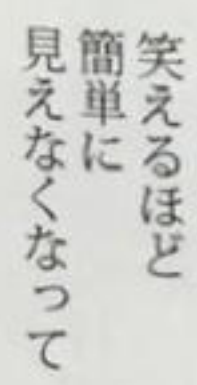 笑えるほど
簡単に
見えなくなって